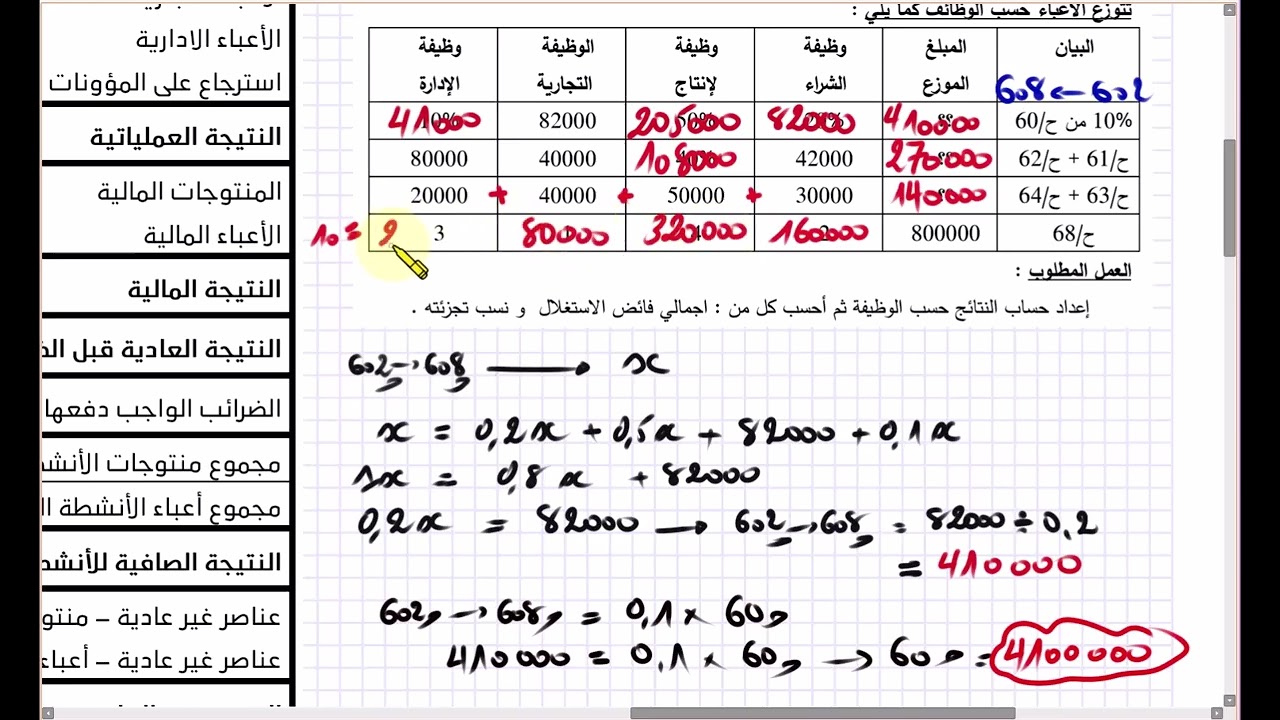 تتوزع الأعباء حسب الوظائف كما يلي :
البيان المبلغ الموزع وظيفة الشراء وظيفة لإنتاج الوظيفة التجارية وظيفة الإدارة
602 → 608
10% من ح/60 410000 82000 205000 82000 41000
ح/61 + ح/62 270000 42000 108000 40000 80000
ح/63 + ح/64 140000 30000 + 50000 + 40000 + 20000
ح/68 800000 160000 320000 80000 3
10 =
العمل المطلوب :
إعداد حساب النتائج حسب الوظيفة ثم أحسب كل من : اجمالي فائض الاستغلال و نسب تجزئته .
602 → 608 → x
x = 0,2x + 0,5x + 82000 + 0,1x
1x = 0,8x + 82000
0,2x = 82000 → 602 → 608 = 82000 ÷ 0,2
= 410000
602 → 608 = 0,1 × 60
410000 = 0,1 × 60 → 60 = 4100000
الأعباء الادارية
استرجاع على المؤونات
النتيجة العملياتية
المنتوجات المالية
الأعباء المالية
النتيجة المالية
النتيجة العادية قبل
الضرائب الواجب دفعها
مجموع منتوجات
مجموع أعباء الأنشطة
النتيجة الصافية
عناصر غير عادية –
عناصر غير عادية –